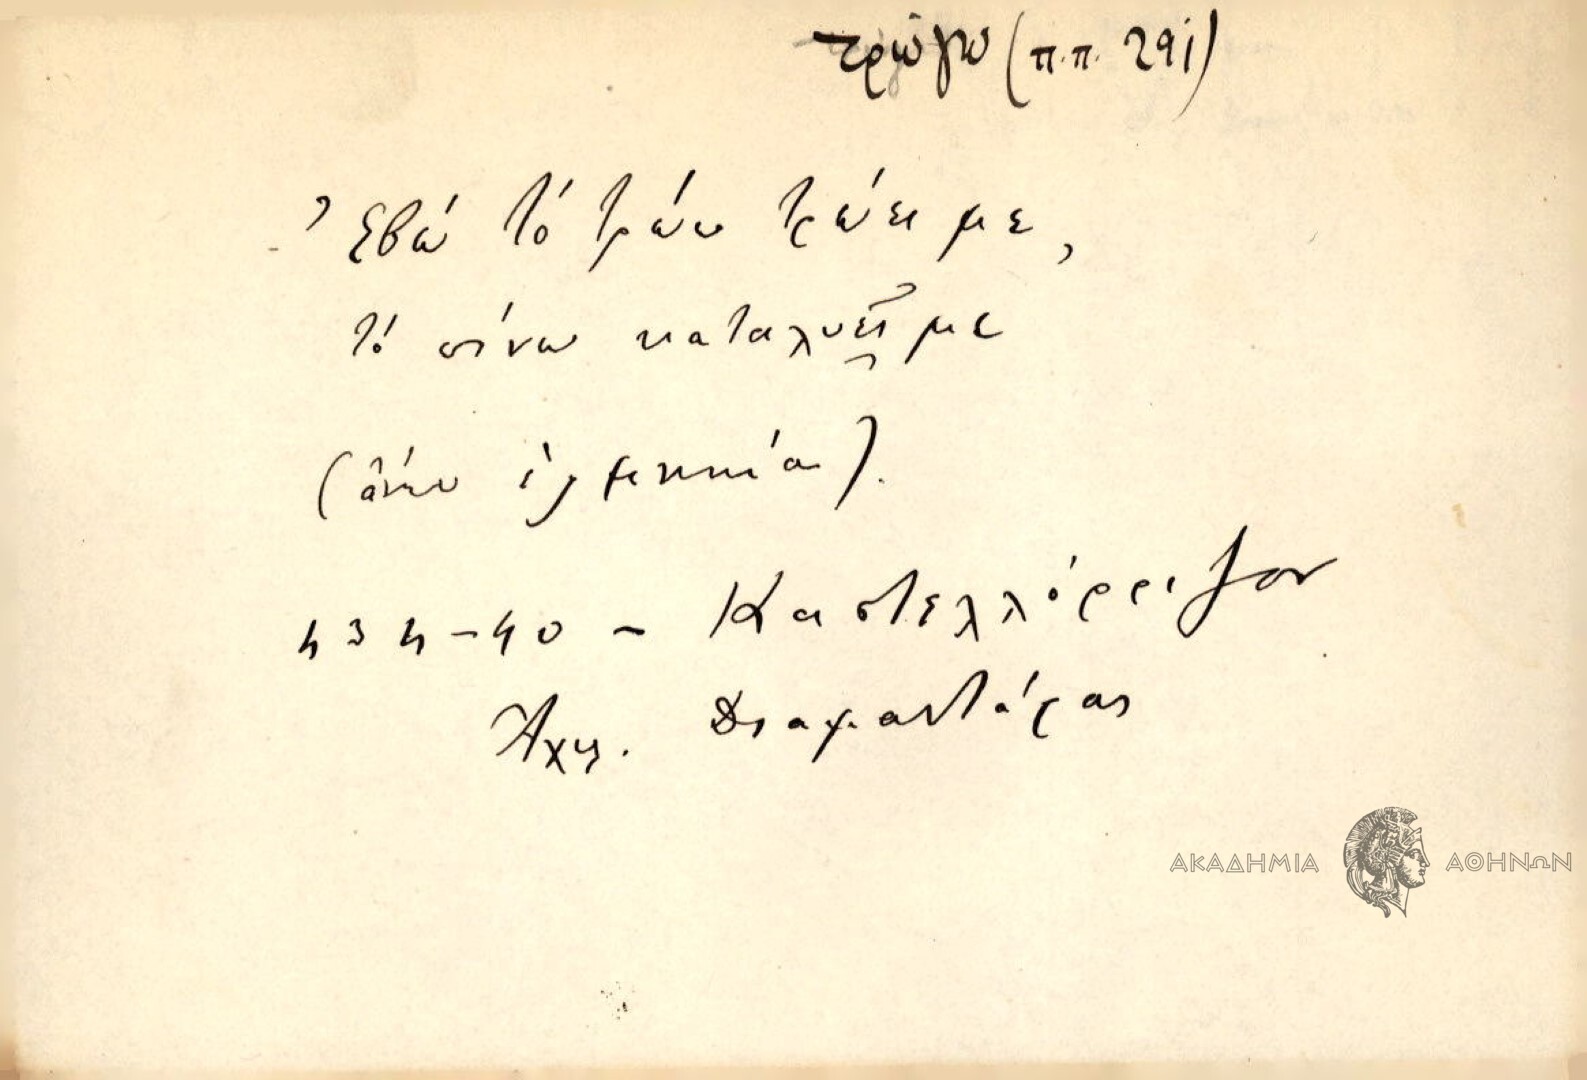 τρώγω (π.π. 291)
Ἐβώ τό τρώω τρώει με,
τό πίνω καταλυεῖ με
(ἄνευ ἑρμηνεία).
434-40 - Καστελλόρριζον
Ἀχιλ. Διαμαντάρας
ΑΚΑΔΗΜΙΑ ΑΘΗΝΩΝ